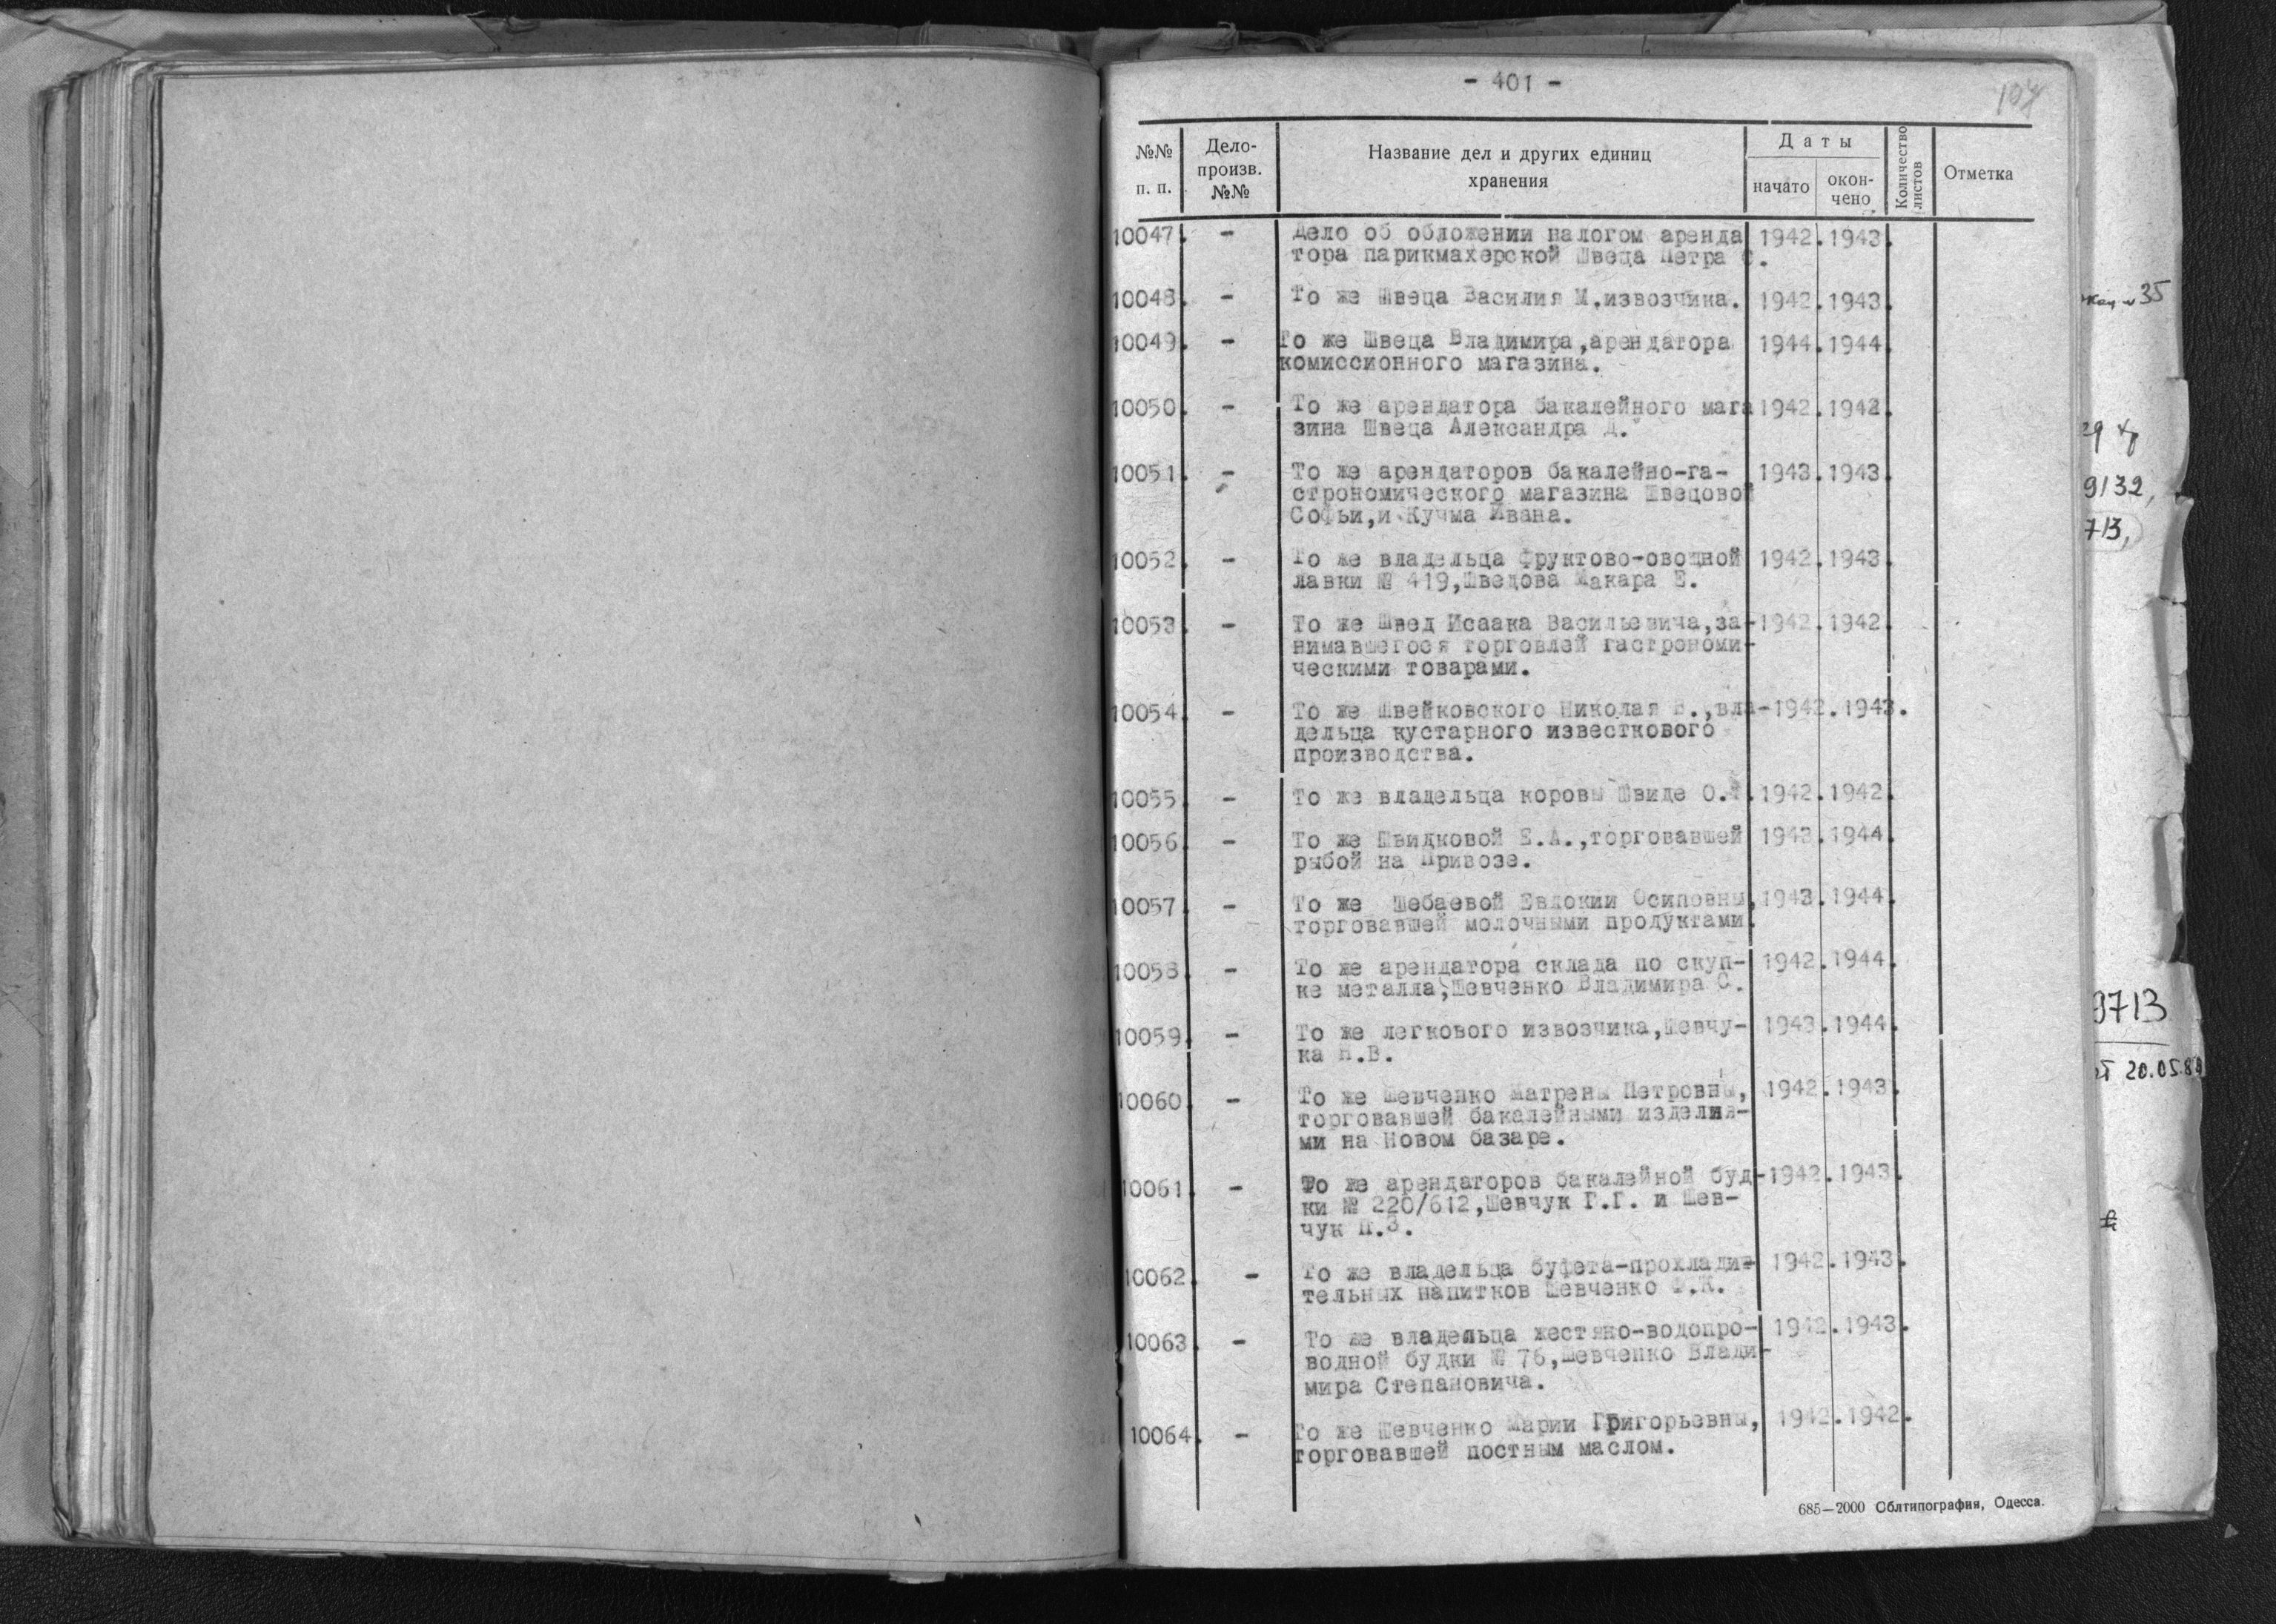 - 401 -
107
№№ п. п.
Дело-произв. №№
Название дел и других единиц хранения
Даты
начато
окон-чено
Количество листов
Отметка
10047. - Дело об обложении налогом аренда 1942.1943.
тора парикмахерской Швеца Петра С.
10048. - То же Швеца Василия М.извозчика. 1942.1943.
10049. - То же Швеца Владимира,арендатора 1944.1944.
комиссионного магазина.
10050. - То же арендатора бакалейного мага 1942.1942.
зина Швеца Александра Д.
10051. - То же арендаторов бакалейно-га- 1943.1943.
строномического магазина Швецовой
Софьи,и Кучма Ивана.
10052. - То же владельца фруктово-овощной 1942.1943.
лавки № 419,Шведова Макара Е.
10053. - То же Швед Исаака Васильевича,за-1942.1942.
нимавшегося торговлей гастрономи-
ческими товарами.
10054. - То же Швейковского Николая В.,вла-1942.1943.
дельца кустарного известкового
производства.
10055. - То же владельца коровы Швиде О. 1942.1942.
10056. - То же Швидковой Е.А.,торговавшей 1943.1944.
рыбой на Привозе.
10057. - То же Шебаевой Евдокии Осиповны,1943.1944.
торговавшей молочными продуктами.
10058. - То же арендатора склада по скуп- 1942.1944.
ке металла,Шевченко Владимира С.
10059. - То же легкового извозчика,Шевчу- 1943.1944.
ка Н.В.
10060. - То же Шевченко Матрены Петровны, 1942.1943.
торговавшей бакалейными изделия-
ми на Новом базаре.
10061. - То же арендаторов бакалейной буд-1942.1943.
ки № 220/612,Шевчук Г.Г. и Шев-
чук П.З.
10062. - То же владельца буфета-прохлади- 1942.1943.
тельных напитков Шевченко Ф.К.
10063. - То же владельца жестяно-водопро- 1942.1943.
водной будки № 76,Шевченко Влади-
мира Степановича.
10064. - То же Шевченко Марии Григорьевны, 1942.1942.
торговавшей постным маслом.
685—2000 Облтипография, Одесса.
35
9132,
713,
9713
20.05.89